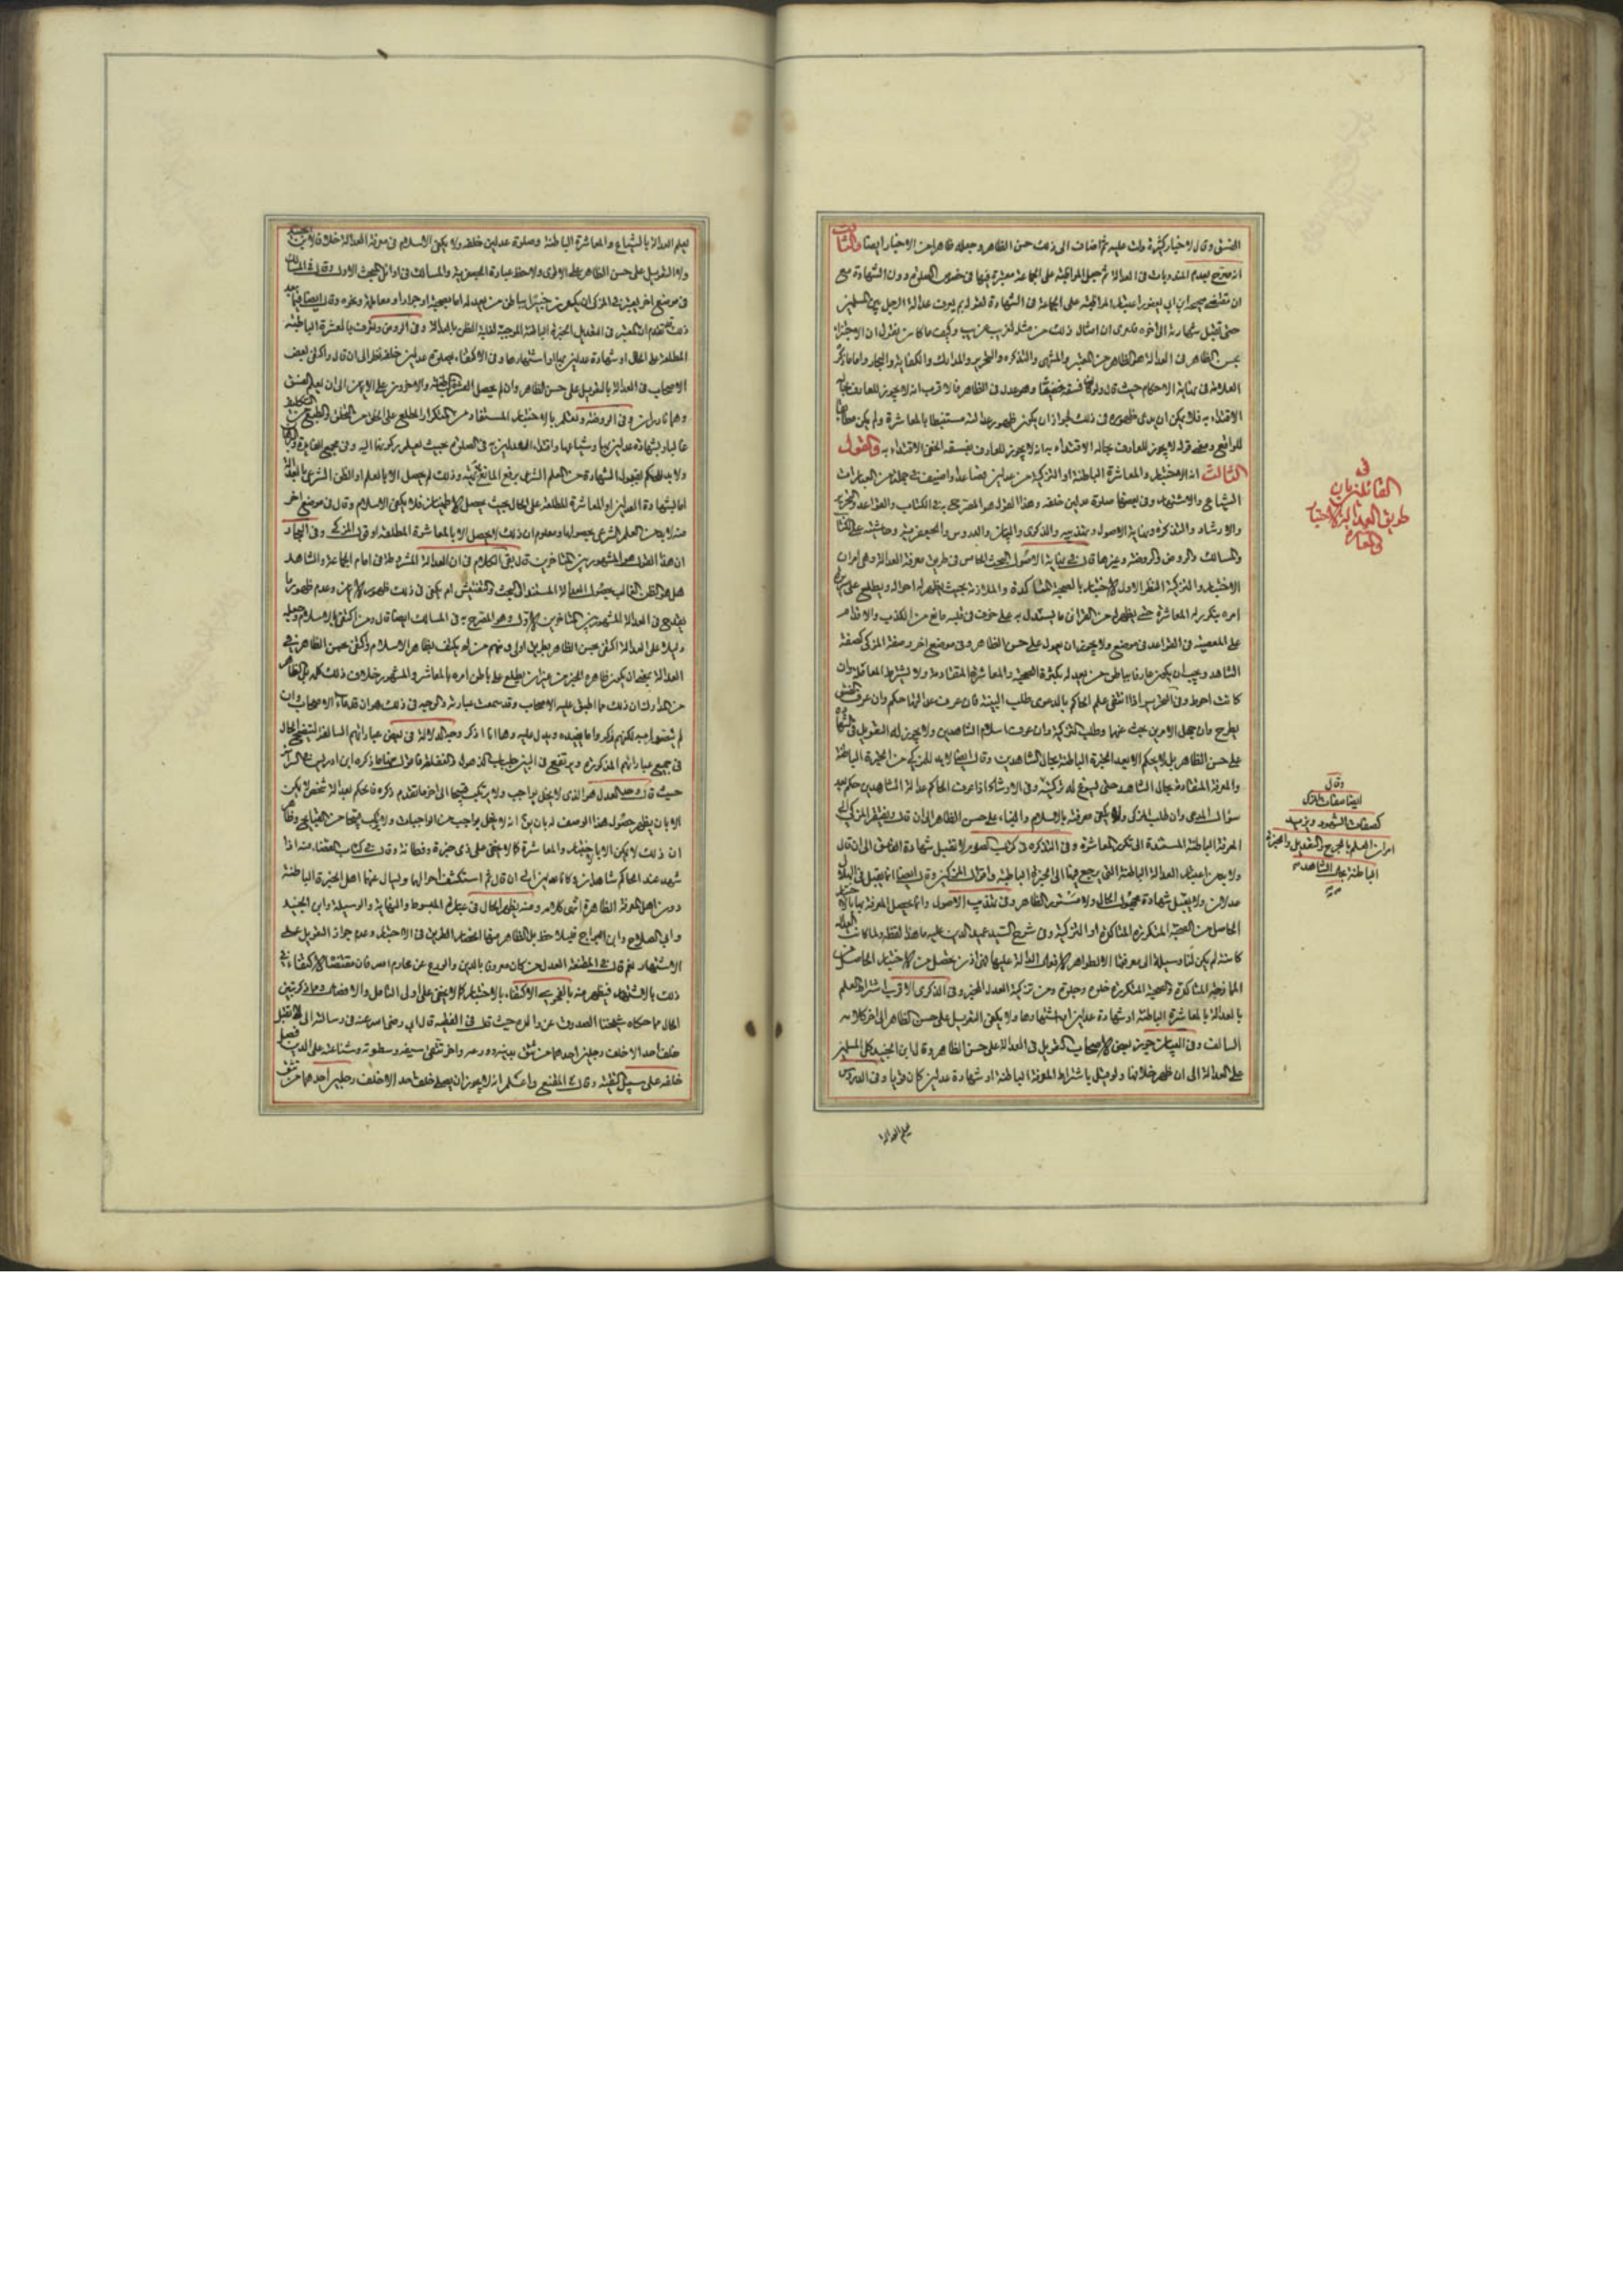 الفسق وقال لاخبار كثيرة دلت عليه ثم اضاف الى ذلك حسن الظاهر وجعله ظاهرا من الاخبار ايضا والثالث
انه صرح بعدم المندوبات في العدالة ثم جعل المواظبة على الجماعة معتبرة فيها في خصوص الصلوة دون الشهادة مع
ان مقتضى صحيحة ابن ابي يعفور اعتبار المواظبة على الجماعة في الشهادة لقوله لم يعرف عدالة الرجل بين المسلمين
حتى تقبل شهادته الى اخره
بحسن الظاهر في العدالة هو الظاهر من المعتبر والمنتهى والتذكرة والتحرير والمدارك والكفاية والبحار واما ما ذكره
العلامة في نهاية الاحكام حيث قال ولو كان فسقه خفيا وهو عدل في الظاهر فالاقرب انه لا يجوز للعارف بحاله
الاقتداء به فلا يمكن ان يدعى ظهوره في ذلك لجواز ان يكون ظهور عدالته مستنبطا بالمعاشرة ولم يكن مطابقا
للواقع ومعنى قوله لا يجوز للعارف بحاله الاقتداء به انه لا يجوز للعارف بفسقه الخفي الاقتداء به والقول
الثالث انه الاختبار والمعاشرة الباطنة او التزكية من عدلين فصاعدا واضيف في جملة من العبارات
الشياع والاشتهار وفي بعضها صلوة عدلين خلفه وهذا القول هو المصرح به في الكتاب والقواعد والتحرير
والارشاد والتذكرة ونهاية الاصول وتهذيبه والذكرى والبيان والدروس والجعفرية وحاشية
والمسالك والروض والروضة وغيرها قال في نهاية الاصول البحث الخامس في طريق معرفة العدالة وهي امران
الاختبار والتزكية النظر الاول الاختبار بالصحبة المتأكدة والملازمة بحيث يظهر له احواله ويطلع على سريرة
امره بتكرير المعاشرة حتى يظهر له من القرائن ما يستدل به على خوف في قلبه مانع من الكذب والاقدام
على المعصية وفي القواعد في موضع ولا يجوز ان يعول على حسن الظاهر وفي موضع اخر وصفة المزكي كصفة
الشاهد ويجب ان يكون عارفا بباطن من يعدله بكثرة الصحبة والمعاشرة المتقادمة ولا يشترط المعاملة وان
كانت احوط وفي التحرير اذا انتفى علم الحاكم بالدعوى طلب البينة فان عرف عدالتهما حكم وان عرف الفسق
يطرح وان جهل الامرين بحث عنهما وطلب التزكية وان عرف اسلام الشاهدين ولا يجوز له التعويل في الشهادة
على حسن الظاهر بل لا يحكم الا بعد الخبرة الباطنة بحال الشاهدين وقال ايضا لابد للمزكي من الخبرة الباطنة
والمعرفة المتقادمة بحال الشاهد حتى يسوغ له تزكيته وفي الارشاد اذا عرف الحاكم عدالة الشاهدين حكم بعد
سؤال المدعي وان طلب المزكي ولا يكفي معرفته بالاسلام والبناء على حسن الظاهر الى ان قال ويفتقر المزكي الى
المعرفة الباطنة المستندة الى تكرر المعاشرة وفي التذكرة في كتاب الصوم لا تقبل شهادة الفاسق الى ان قال
ولا بد من اعتبار العدالة الباطنة التي يرجع فيها الى الخبرة الباطنة واقوال المزكين وقال ايضا انما يقبل في الهلال
عدلان ولا يقبل شهادة مجهول الحال ولا مستور الظاهر وفي تهذيب الاصول وانما يحصل المعرفة بها بالاختبار
الحاصل من الصحبة المتكررة المتأكدة او التزكية وفي شرح السيد عميد الدين عليه ما هذا لفظه ولما كانت العدالة
كامنة لم يكن لنا وسيلة الى معرفتها الا بظواهر الافعال الدالة عليها فهي اذن يحصل من الاختبار الحاصل من
المازجة المتأكدة والصحبة المتكررة خلوة وجلوة ومن تزكية العدل الخبير وفي الذكرى الاقرب اشتراط العلم
بالعدالة بالمعاشرة الباطنة او شهادة عدلين او اشتهارها ولا يكفي التعويل على حسن الظاهر الى اخر كلامه
السالف وفي البيان جوز بعض الاصحاب التعويل في العدالة على حسن الظاهر وقال ابن الجنيد كل المسلمين
على العدالة الى ان ظهر خلافها ولو قيل باشتراط المعرفة الباطنة او شهادة عدلين كان قويا وفي الدروس
يعلم العدالة
في
القائلين بان
طريق العدالة الاختبار
وقال
ايضا صفات المزكي
كصفات الشهود ويزيد
امران العلم بالجرح والتعديل والخبرة
الباطنة بحال الشاهد
يعلم العدالة بالشياع والمعاشرة الباطنة وصلوة عدلين خلفه ولا يكفي الاسلام في معرفة العدالة خلافا لابن الجنيد
ولا التعويل على حسن الظاهر على الاقوى ولاحظ عبارة الجعفرية والمسالك في اوائل المبحث الاول وقال في المسالك
في موضع اخر يعتبر في المزكي ان يكون خبيرا بباطن من يعدله اما بصحبة او جوار او معاملة ونحوه وقال ايضا فيما بعد
ذلك قد تقدم ان المعتبر في التعديل الخبرة الباطنة الموجبة لغلبة الظن بالعدالة وفي الروض وتعرف بالمعاشرة الباطنة
المطلعة على الحال او شهادة عدلين بها او اشتهارها وفي الاكتفاء بصلوة عدلين خلفه نظر الى ان قال واكتفى بعض
الاصحاب في العدالة بالتعويل على حسن الظاهر وان لم يحصل المعاشرة الباطنة والاخرون على الايمان الى ان يعلم الفسق
وهما نادران وفي الروضة وتعلم بالاختبار المستفاد من التكرار المطلع على الخلق من التخلق والطبع من التكلف
غالبا وبشهادة عدلين بها وشياعها واقتداء العدلين به في الصلوة بحيث يعلم ركونهما اليه وفي مجمع الفائدة
ولابد للحكم بقبول الشهادة من العلم الشرعي برفع المانع وذلك لم يحصل الا بالعلم او الظن الشرعي بالعدالة
اما بشهادة العدلين او المعاشرة المطلعة على الحال بحيث يحصل الاطمينان فلا يكفي الاسلام وقال في موضع اخر
منه لابد من العلم الشرعي بحصولها ومعلوم ان ذلك لا يحصل الا بالمعاشرة المطلعة او قول المزكي وفي البحار
ان هذا القول هو المشهور بين المتأخرين قال بقي الكلام في ان العدالة المشروطة في امام الجماعة والشاهد
هل هو الظن الغالب بحصول العدالة المستند الى البحث والتفتيش ام يكفي في ذلك ظهور الايمان وعدم ظهور ما
يقدح في العدالة المشهور بين المتأخرين الاول وهو المصرح به في المسالك ايضا قال ومن اكتفى بالاسلام وجعله
دليلا على العدالة اكتفى بحسن الظاهر بطريق اولى ومنهم من لم يكتف بظاهر الاسلام واكتفى بحسن الظاهر في
العدالة بمعنى ان يكون ظاهره الخير من غير ان يطلع على باطن امره بالمعاشرة والمشهور خلاف ذلك كله بل الظاهر
من المدارك ان ذلك مما اطبق عليه الاصحاب وقد سمعت عبارته والوجه في ذلك هو ان قدماء الاصحاب وان
لم يصرحوا به لكنهم ذكروا ما يفيده ويدل عليه وها انا اذكر وجه الدلالة في بعض عباراتهم السالفة ليتضح الحال
في جميع عباراتهم المذكورة ويرتفع في البين حجاب الذهول والغفلة فاقول منها ما ذكره ابن ادريس في السرائر
حيث قال حد العدل هو الذي لا يخل بواجب ولا يرتكب قبيحا الى اخر ما تقدم ذكره فالحكم بعدالة شخص لا يمكن
الا بان يظهر حصول هذا الوصف له بان يرى انه لا يخل بواجب من الواجبات ولا يرتكب قبيحا من القبايح وظاهر
ان ذلك لا يمكن الا بالاختبار والمعاشرة كما لا يخفى على ذي خبرة وفطانة وقال في كتاب القضاء منه اذا
شهد عند الحاكم شاهدان الى ان قال ثم استكشف احوالهما ويسأل عنهما اهل الخبرة الباطنة
دون اهل المعرفة الظاهرة انتهى كلامه ومنه يظهر الحال في عبارة المبسوط والنهاية والوسيلة وابن الجنيد
وابي الصلاح وابن البراج فيلاحظ بل الظاهر منها انحصار الطريق في الاختبار وعدم جواز التعويل على
الاشتهار نعم قال في المقنعة العدل من كان معروفا بالدين والورع عن محارم الله فان مقتضاه الاكتفاء في
ذلك بالاشتهار فيظهر منه بالفحوى الاكتفاء بالاختبار كما لا يخفى على اولي التأمل والانصاف ومما ذكر تبين
الحال مما حكاه شيخنا الصدوق عن والده حيث قال في الفقيه قال ابي رضي الله عنه في رسالته الي لا تصل
خلف احد الا خلف رجلين احدهما من تثق بدينه وورعه واخر تتقي سيفه وسطوته وشناعته على الدين فصل
خلفه على سبيل التقية وقال في المقنع واعلم انه لا يجوز ان يصلى خلف احد الا خلف رجلين احدهما من تثق